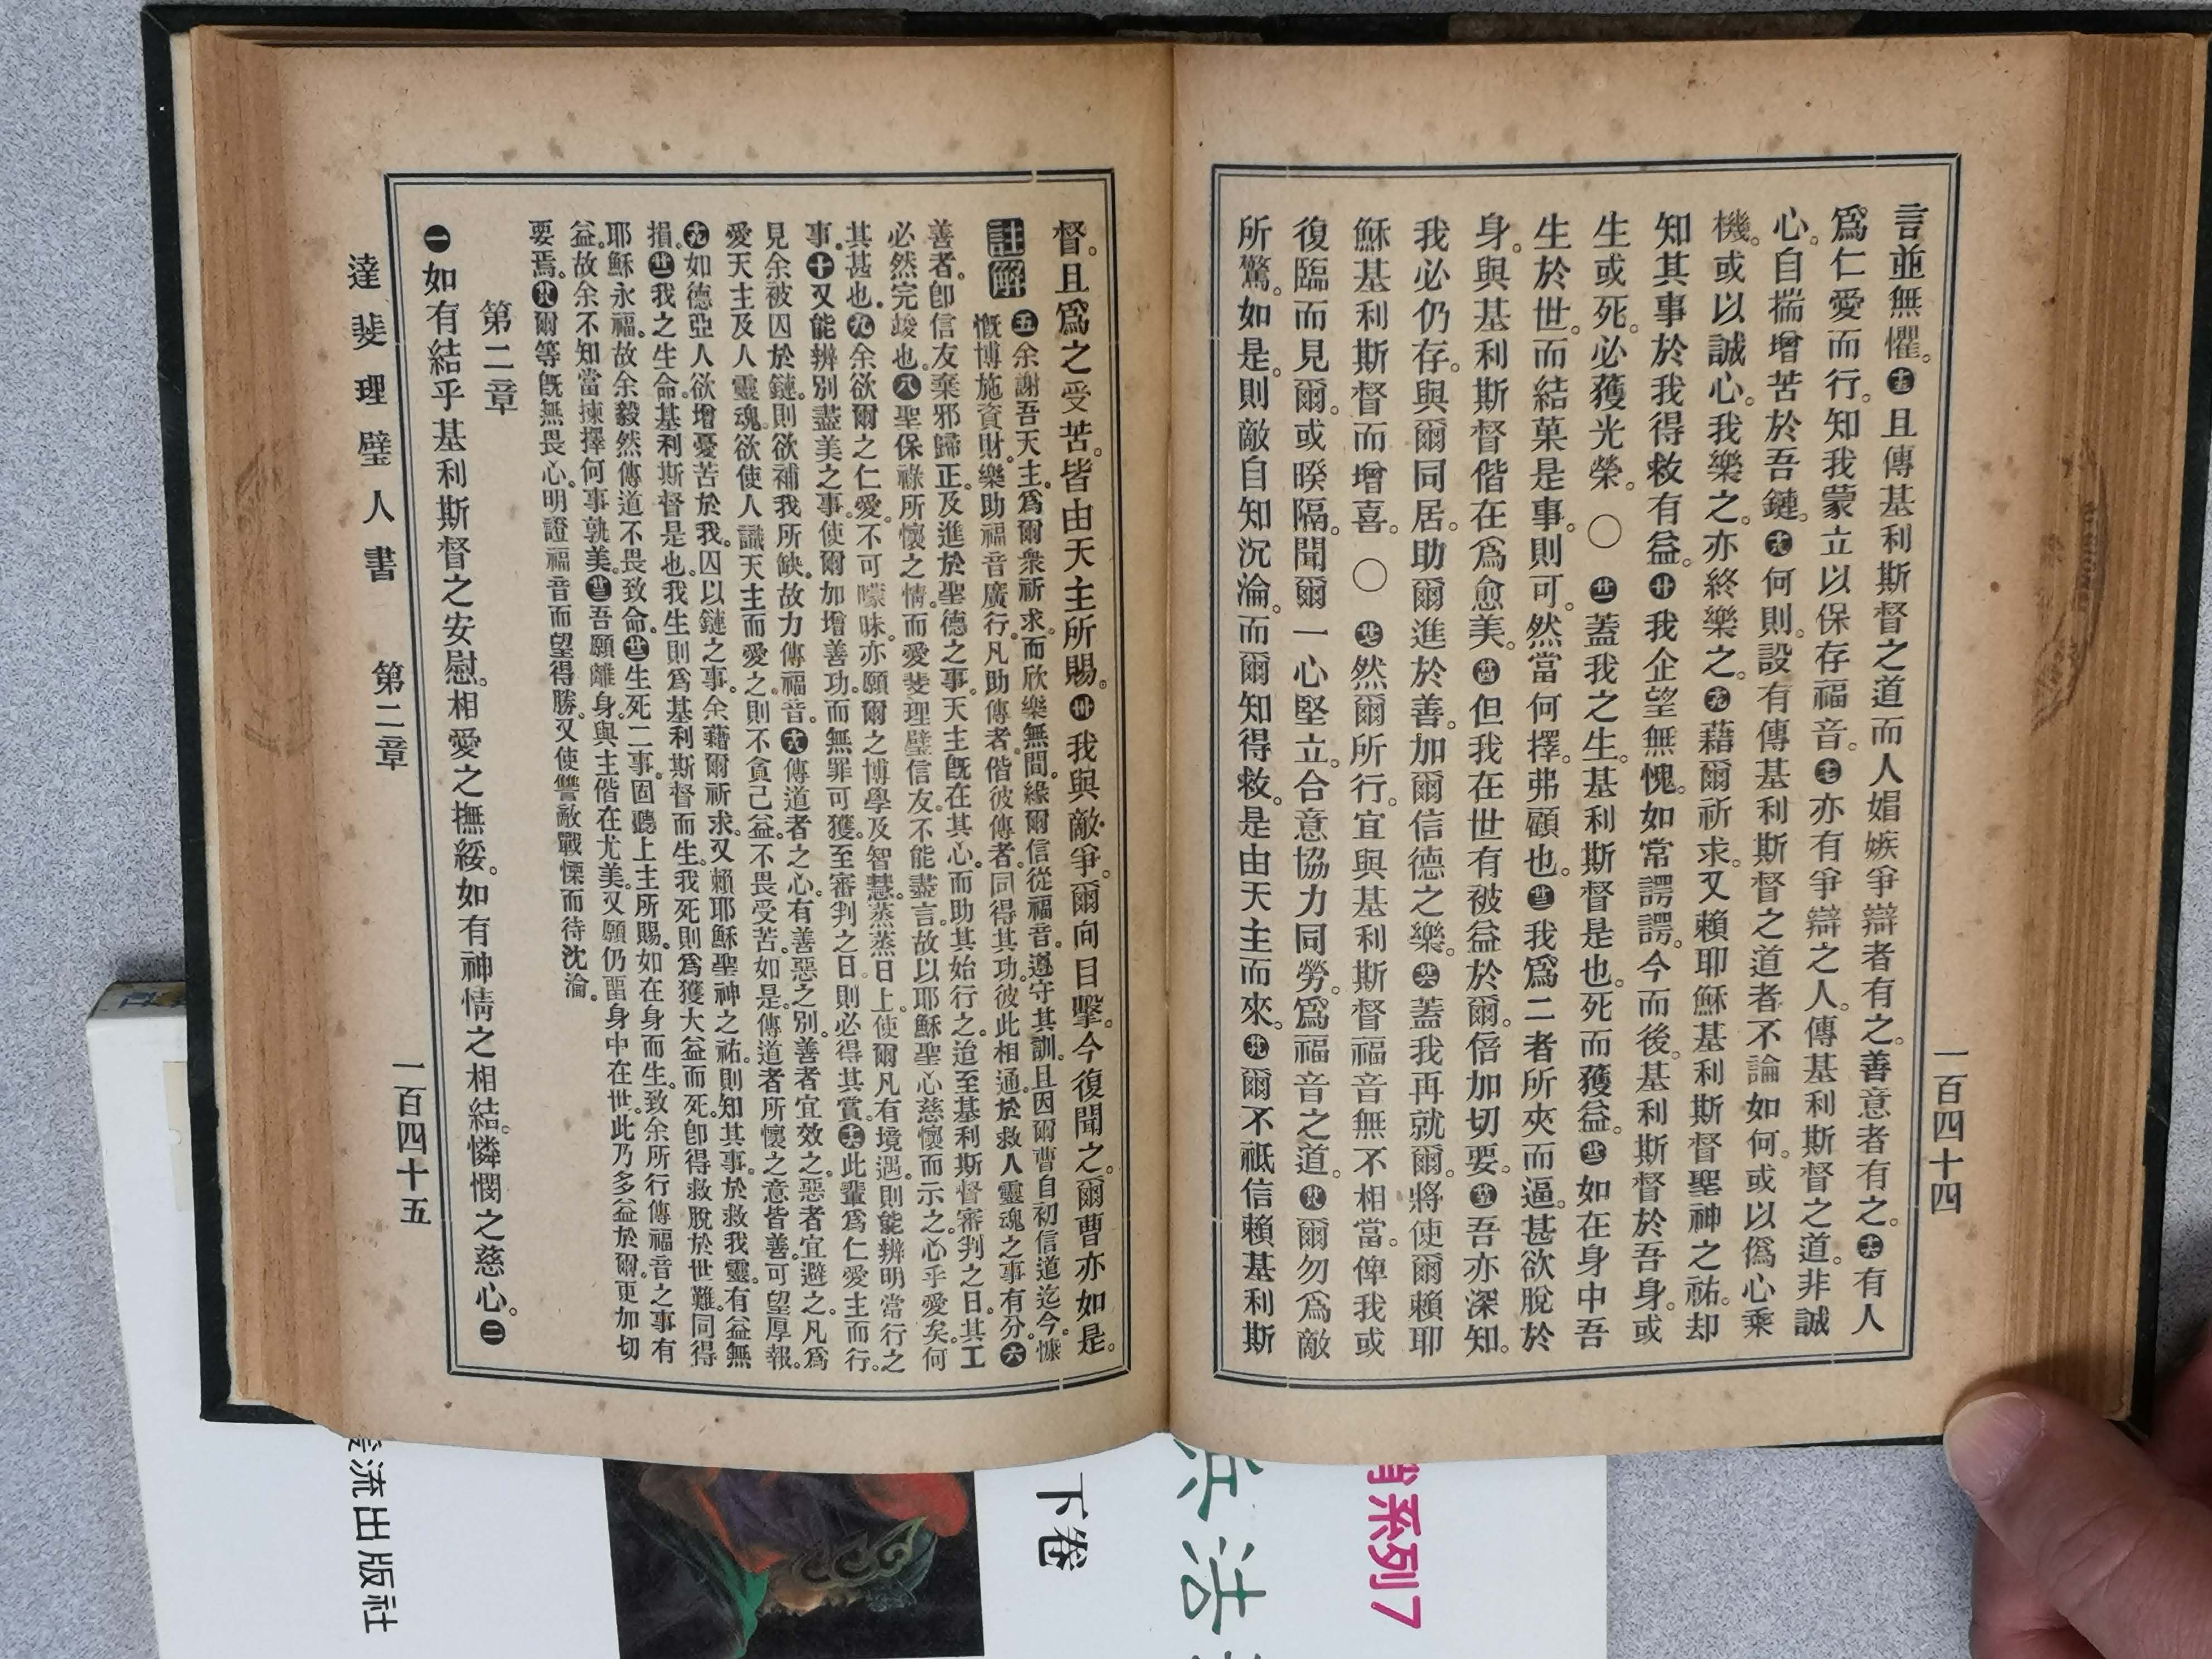 一百四十四
言並無懼。十五且傳基利斯督之道而人娼嫉爭辯者有之。善意者有之。十六有人
爲仁愛而行。知我蒙立以保存福音。十七亦有爭辯之人。傳基利斯督之道。非誠
心。自揣增苦於吾鏈。十八何則。設有傳基利斯督之道者不論如何。或以僞心乘
機。或以誠心。我樂之。亦終樂之。十九藉爾祈求。又賴耶穌基利斯督聖神之祐。却
知其事於我得救有益。廿我企望無愧。如常諤諤。今而後。基利斯督於吾身。或
生或死。必獲光榮。〇廿一蓋我之生。基利斯督是也。死而獲益。廿二如在身中吾
生於世。而結菓是事。則可。然當何擇。弗顧也。廿三我爲二者所夾而逼。甚欲脫於
身。與基利斯督偕在爲愈美。廿四但我在世有被益於爾。倍加切要。廿五吾亦深知。
我必仍存。與爾同居。助爾進於善。加爾信德之樂。廿六蓋我再就爾。將使爾賴耶
穌基利斯督而增喜。〇廿七然爾所行。宜與基利斯督福音無不相當。俾我或
復臨而見爾。或暌隔。聞爾一心堅立。合意協力同勞。爲福音之道。廿八爾勿爲敵
所驚。如是。則敵自知沉淪。而爾知得救。是由天主而來。廿九爾不祗信賴基利斯
督。且爲之受苦。皆由天主所賜。卅我與敵爭。爾向目擊。今復聞之。爾曹亦如是。
註解 五余謝吾天主。爲爾衆祈求。而欣樂無間。緣爾信從福音。遵守其訓。且因爾曹自初信道迄今。慷
慨博施資財。樂助福音廣行。凡助傳者。偕彼傳者。同得其功。彼此相通。於救人靈魂之事有分。六
善者。卽信友棄邪歸正。及進於聖德之事。天主旣在其心。而助其始行之。迨至基利斯督審判之日。其工
必然完竣也。八聖保祿所懷之情。而愛斐理璧信友。不能盡言。故以耶穌聖心慈懷而示之。心乎愛矣。何
其甚也。九余欲爾之仁愛。不可曚昧。亦願爾之博學及智慧。蒸蒸日上。使爾凡有境遇。則能辨明當行之
事。十又能辨別盡美之事。使爾加增善功。而無罪可獲。至審判之日。則必得其賞。十六此輩爲仁愛主而行。
見余被囚於鏈。則欲補我所缺。故力傳福音。十八傳道者之心。有善惡之別。善者宜效之。惡者宜避之。凡爲
愛天主及人靈魂。欲使人識天主而愛之。則不貪己益。不畏受苦。如是。傳道者所懷之意皆善。可望厚報。
十九如德亞人。欲增憂苦於我。囚以鏈之事。余藉爾祈求。又賴耶穌聖神之祐。則知其事。於救我靈。有益無
損。廿一我之生命。基利斯督是也。我生則爲基利斯督而生。我死則爲獲大益而死。卽得救脫於世難。同得
耶穌永福。故余毅然傳道。不畏致命。廿二生死二事。固聽上主所賜。如在身而生。致余所行傳福音之事有
益。故余不知當揀擇何事孰美。廿三吾願離身。與主偕在尤美。又願仍畱身中在世。此乃多益於爾。更加切
要焉。廿八爾等旣無畏心。明證福音。而望得勝。又使讐敵戰慄而待沈淪。
第二章
一如有結乎基利斯督之安慰。相愛之撫綏。如有神情之相結。憐憫之慈心。二
達斐理璧人書 第二章 一百四十五
流出版社
下卷
法
系列7